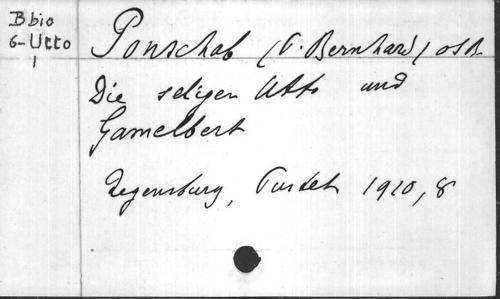 B bio
6-Utto
1
Ponschab (P. Bernhard) OSB
Die seligen Utto und
Gamelbert
Regensburg, Pustet 1910, 8